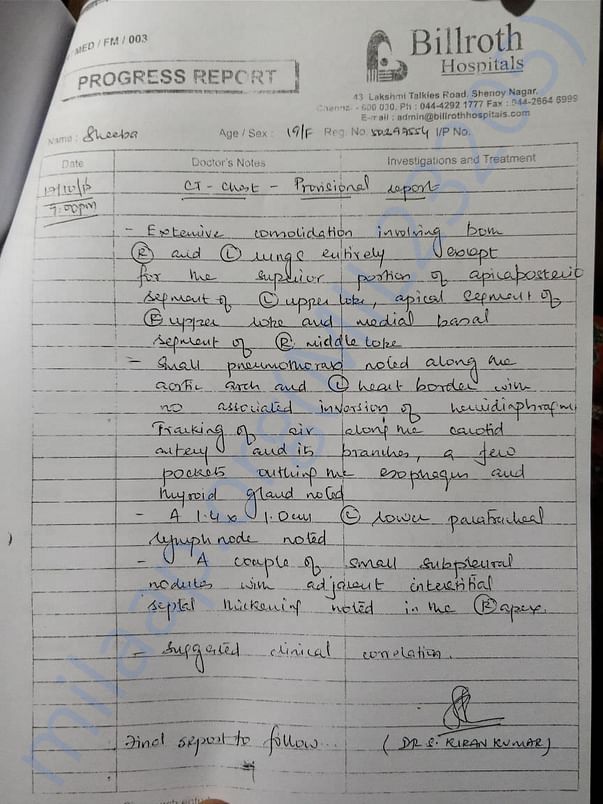 MED / FM / 003
Billroth
Hospitals
PROGRESS REPORT
43 Lakshmi Talkies Road, Shenoy Nagar,
Chennai - 600 030. Ph : 044-4292 1777 Fax : 044-2664 6999
E-mail : admin@billrothhospitals.com
Name : Sheeba Age / Sex : 19/F Reg. No. I/P No.
Date Doctor's Notes Investigations and Treatment
CT - Chest - Provisional report
7:00pm
- Extensive consolidation involving both
(R) and (L) lungs entirely except
for the superior portion of apicoposterior
segment of (L) upper lobe, apical segment of
(R) upper lobe and medial basal
segment of (R) middle lobe
- Small pneumothorax noted along the
aortic arch and (L) heart border with
no associated inversion of hemidiaphragm
Tracking of air along the carotid
artery and its branches, a few
pockets outlining the esophagus and
thyroid gland noted
- A 1.4 x 1.0cm (L) lower paratracheal
lymph node noted
- A couple of small subpleural
nodules with adjacent interstitial
septal thickening noted in the (R) apex.
- Suggested clinical correlation.
Final report to follow...
(DR S. KIRAN KUMAR)